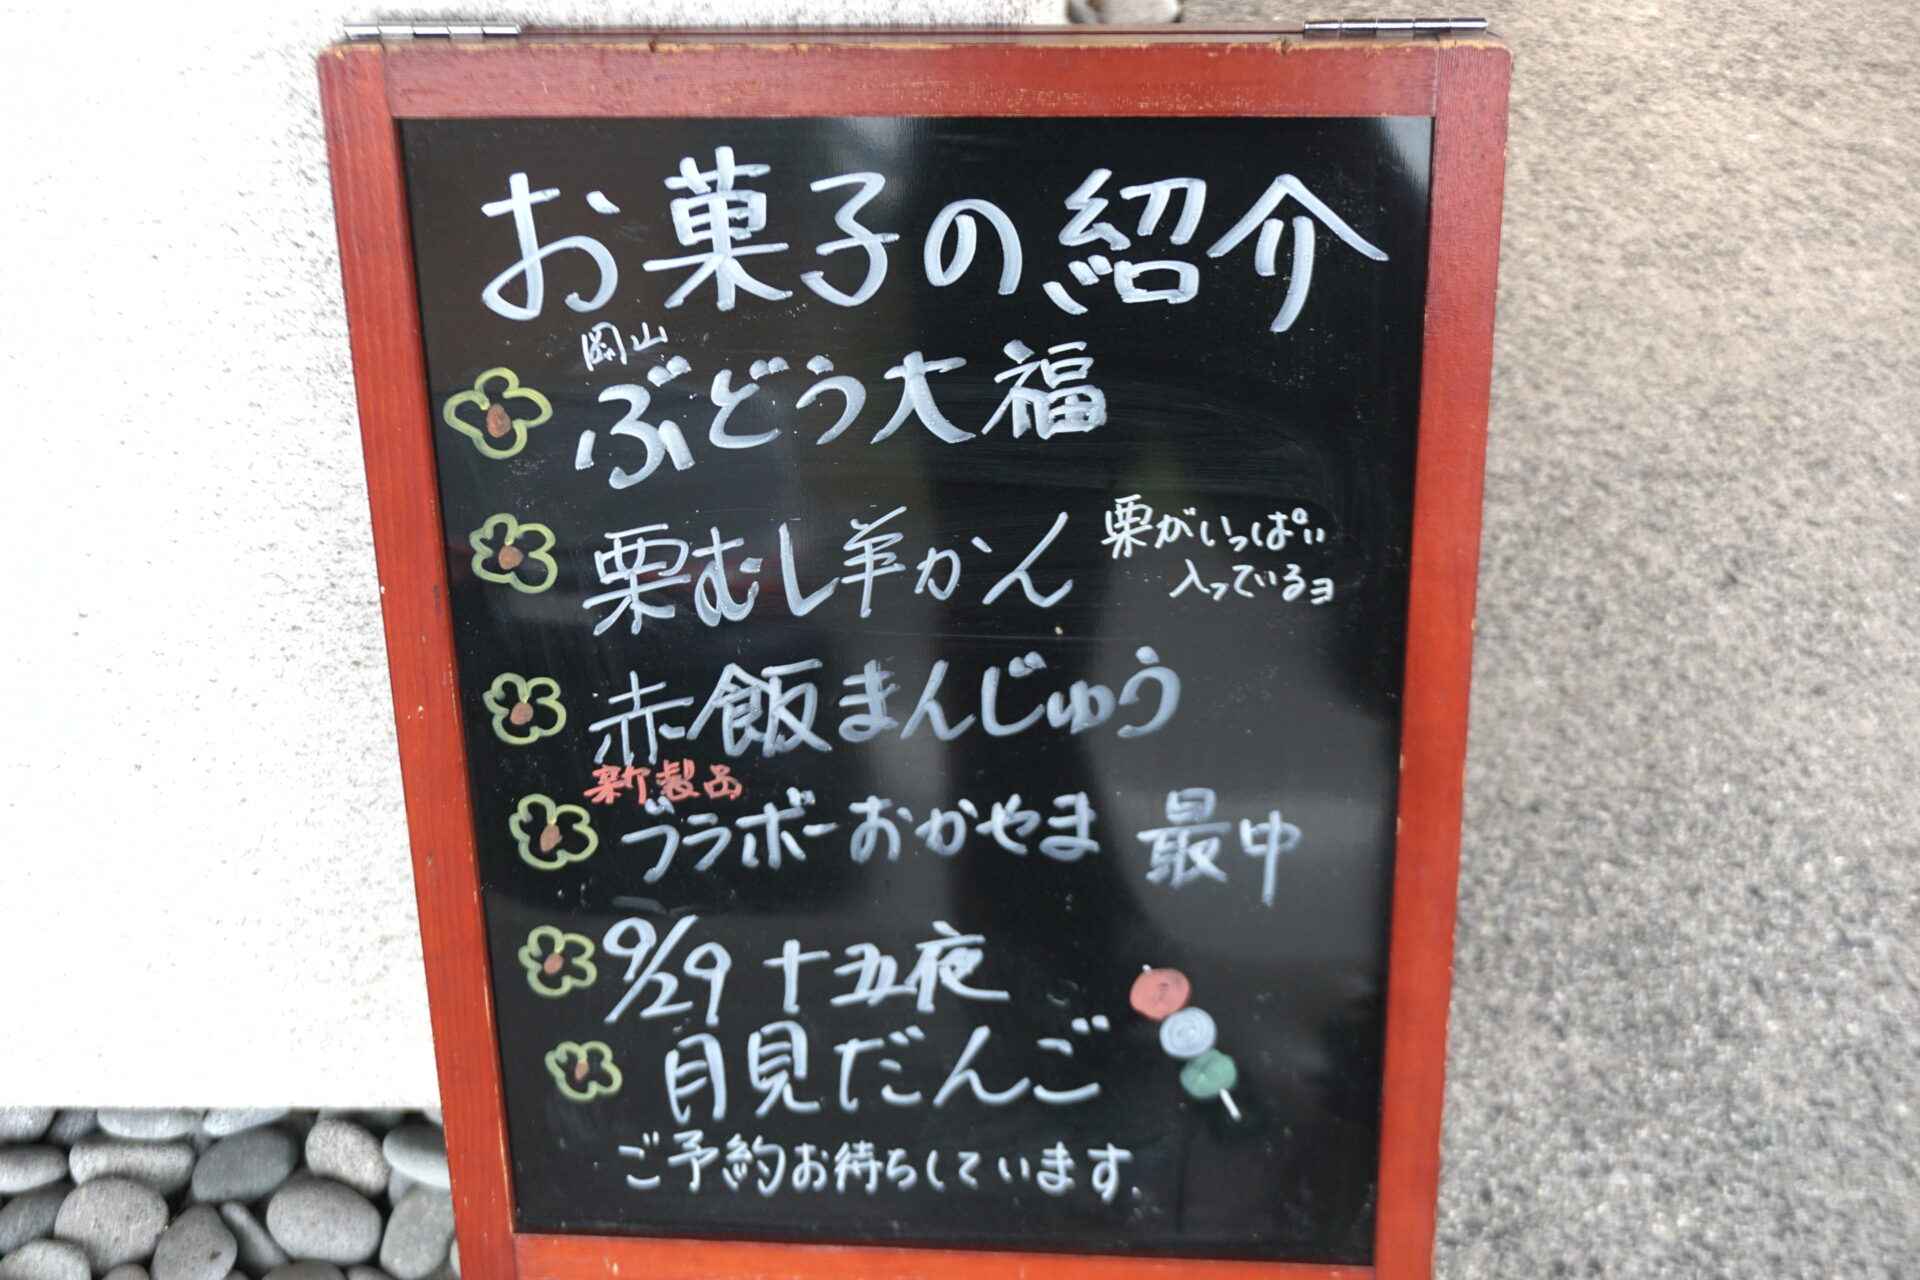 お菓子の紹介
岡山
ぶどう大福
栗むし羊かん
栗がいっぱい
入っているヨ
赤飯まんじゅう
新製品
ブラボーおかやま 最中
9/29 十五夜
月見だんご
ご予約お待ちしています.